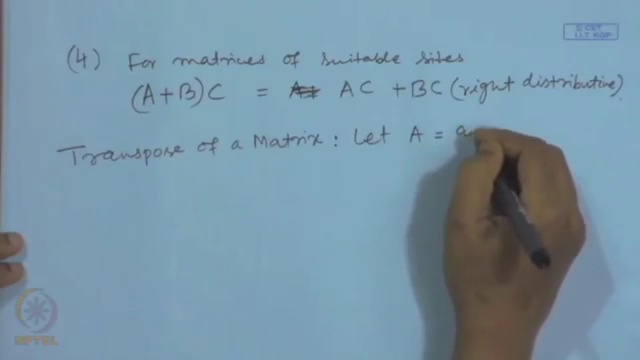 © CET
I.I.T. KGP
(4) For matrices of suitable sites
(A+B)C = AC + BC (right distributive).
Transpose of a Matrix : Let A = a
NPTEL